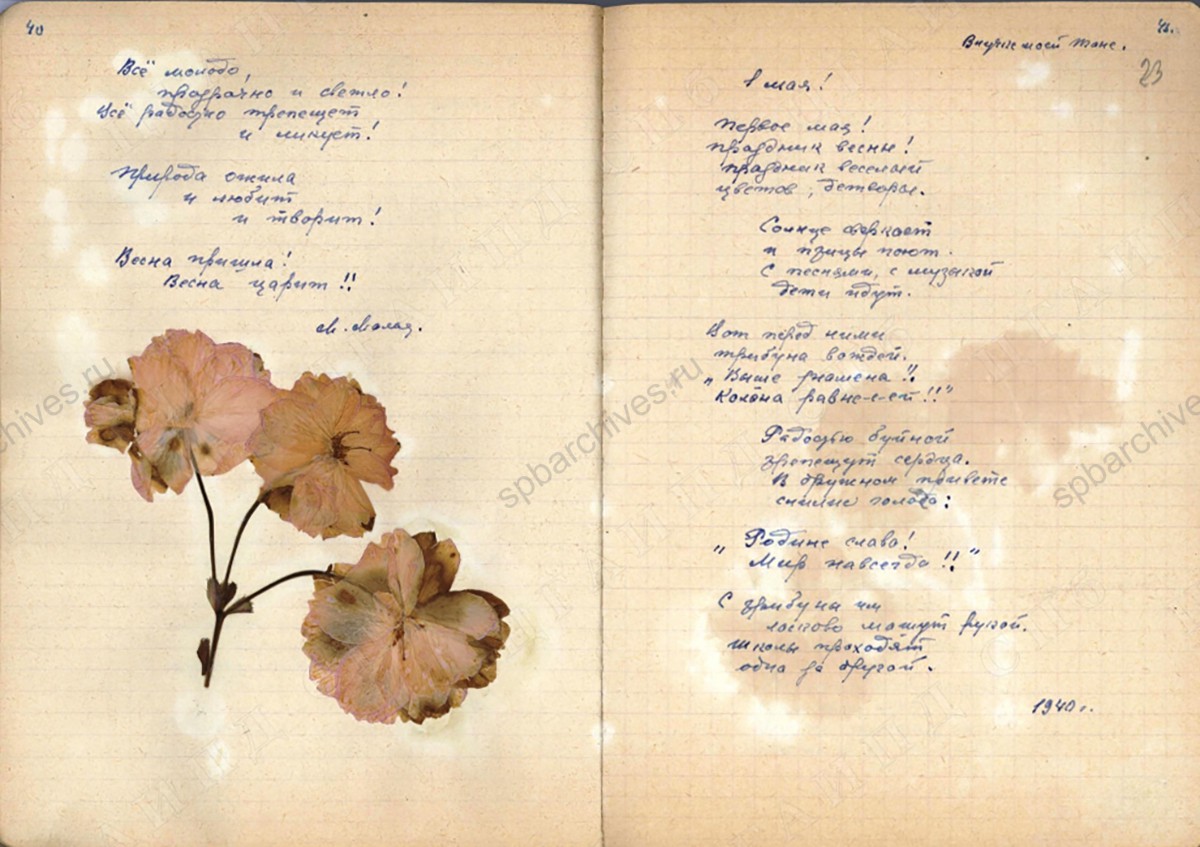 40
Всё молодо,
прозрачно и светло!
Всё радостно трепещет
и ликует!
Природа ожила
и любит
и творит!
Весна пришла!
Весна царит!!
М.
41.
Внучке моей Тане.
23
1 мая!
Первое мая!
Праздник весны!
Праздник веселый
цветов, детворы.
Солнце сверкает
и птицы поют.
С песнями, с музыкой
дети идут.
Вот перед ними
трибуна вождей.
„Выше знамена!!
Колона равне-е-ей!!"
Радостью буйной
трепещут сердца.
В дружном привете
слились голоса:
„Родине слава!
Мир навсегда!!"
С трибуны им
ласково машут рукой.
Школы проходят
одна за другой.
1940 г.
spbarchives.ru
spbarchives.ru
spbarchives